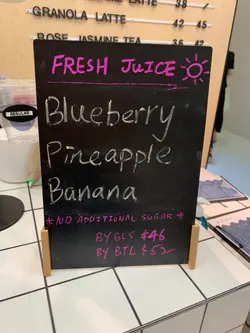 LATTE 38 /
GRANOLA LATTE 42 45
ROSE JASMINE TEA 36 42
REGULAR
FRESH JUICE
Blueberry
Pineapple
Banana
* NO ADDITIONAL SUGAR *
BY GLS $46
BY BTL $52